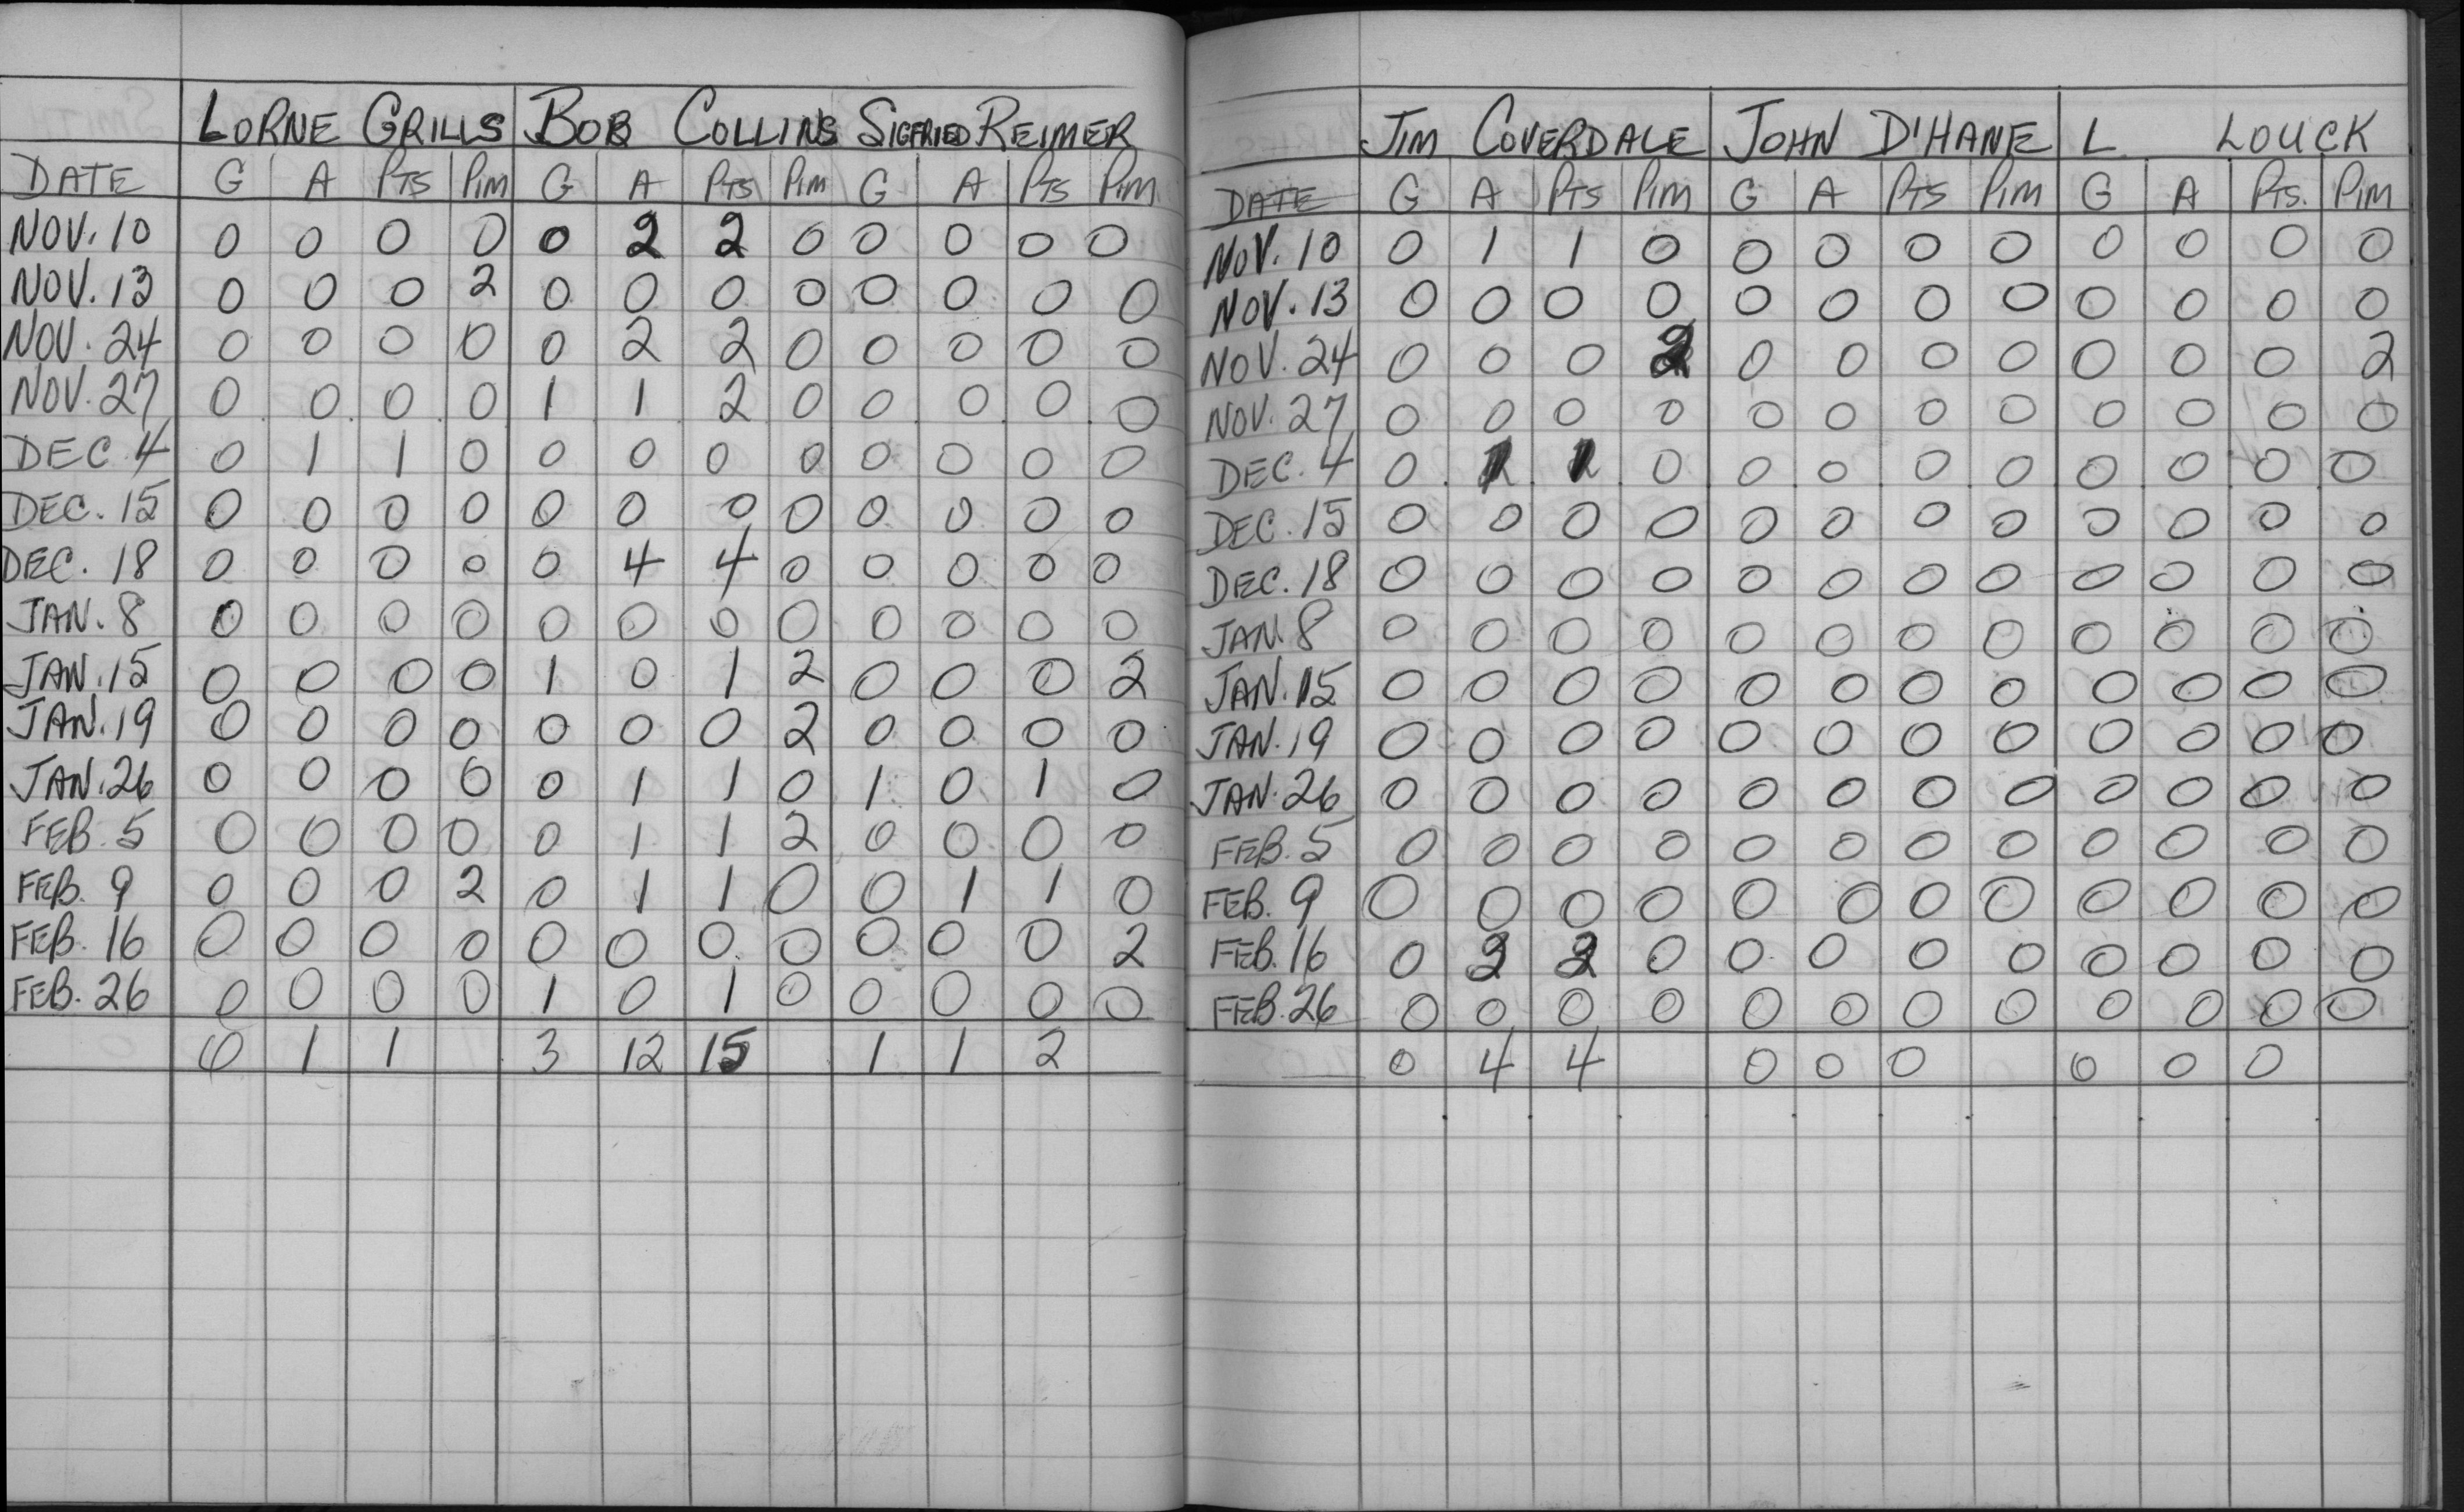 LORNE GRILLS BOB COLLINS SIGFRIED REIMER
DATE G A PTS PIM G A PTS PIM G A PTS PIM
NOV. 10 0 0 0 0 0 2 2 0 0 0 0 0
NOV. 13 0 0 0 2 0 0 0 0 0 0 0 0
NOV. 24 0 0 0 0 0 2 2 0 0 0 0 0
NOV. 27 0 0 0 0 1 1 2 0 0 0 0 0
DEC 4 0 1 1 0 0 0 0 0 0 0 0 0
DEC. 15 0 0 0 0 0 0 0 0 0 0 0 0
DEC. 18 0 0 0 0 0 4 4 0 0 0 0 0
JAN. 8 0 0 0 0 0 0 0 0 0 0 0 0
JAN. 15 0 0 0 0 1 0 1 2 0 0 0 2
JAN. 19 0 0 0 0 0 0 0 2 0 0 0 0
JAN. 26 0 0 0 0 0 1 1 0 1 0 1 0
FEB. 5 0 0 0 0 0 1 1 2 0 0 0 0
FEB. 9 0 0 0 2 0 1 1 0 0 1 1 0
FEB. 16 0 0 0 0 0 0 0 0 0 0 0 2
FEB. 26 0 0 0 0 1 0 1 0 0 0 0 0
0 1 1 3 12 15 1 1 2
JIM COVERDALE JOHN D'HANE L LOUCK
DATE G A PTS PIM G A PTS PIM G A PTS. PIM
NOV. 10 0 1 1 0 0 0 0 0 0 0 0 0
NOV. 13 0 0 0 0 0 0 0 0 0 0 0 0
NOV. 24 0 0 0 2 0 0 0 0 0 0 0 2
NOV. 27 0 0 0 0 0 0 0 0 0 0 0 0
DEC. 4 0 1 1 0 0 0 0 0 0 0 0 0
DEC. 15 0 0 0 0 0 0 0 0 0 0 0 0
DEC. 18 0 0 0 0 0 0 0 0 0 0 0 0
JAN. 8 0 0 0 0 0 0 0 0 0 0 0 0
JAN. 15 0 0 0 0 0 0 0 0 0 0 0 0
JAN. 19 0 0 0 0 0 0 0 0 0 0 0 0
JAN. 26 0 0 0 0 0 0 0 0 0 0 0 0
FEB. 5 0 0 0 0 0 0 0 0 0 0 0 0
FEB. 9 0 0 0 0 0 0 0 0 0 0 0 0
FEB. 16 0 2 2 0 0 0 0 0 0 0 0 0
FEB. 26 0 0 0 0 0 0 0 0 0 0 0 0
0 4 4 0 0 0 0 0 0